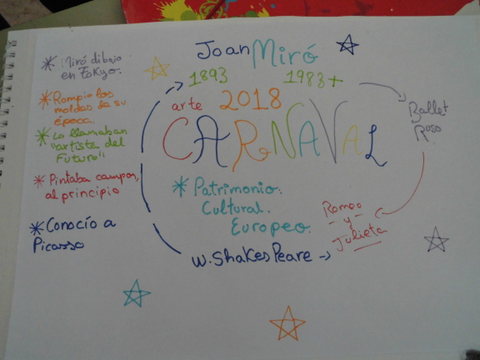 Joan Miró
1893 1983+
arte 2018
CARNAVAL
* Miró dibujo
en Tokyo.
* Rompio los
moldes de su
época.
* Lo llamaban
"artista del
Futuro"
* Pintaba campos,
al principio
* Conocío a
Picasso
* Patrimonio
Cultural
Europeo
W. ShakesPeare →
Romeo
y
Julieta
Ballet
Ruso